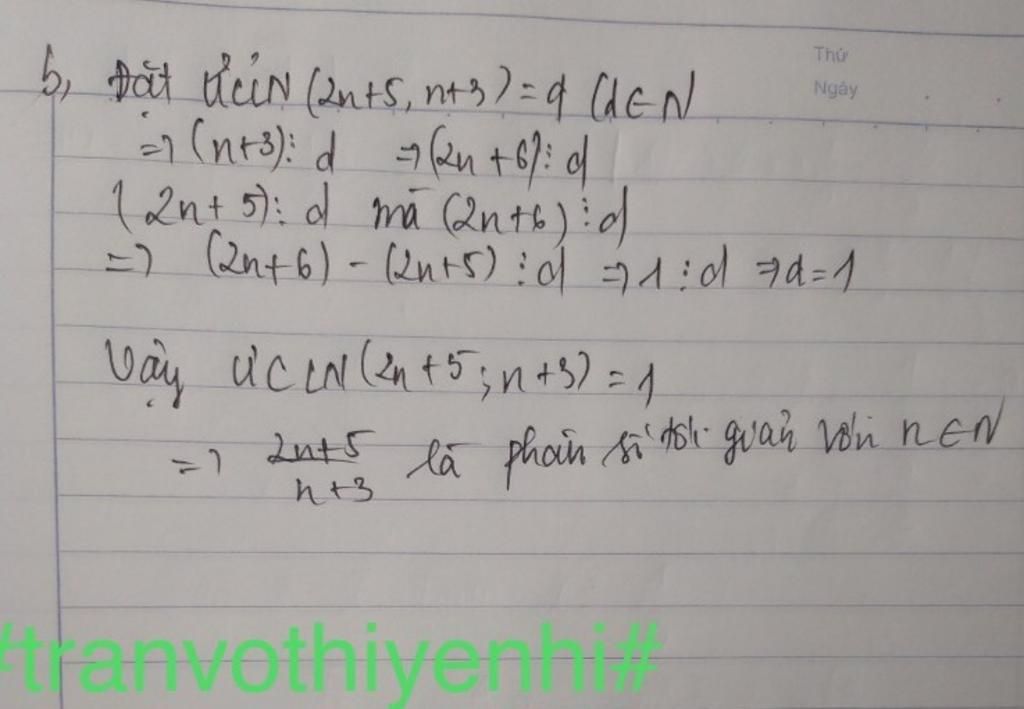 Thứ
Ngày
b, Đặt ƯCLN (2n+5, n+3) = d (d∈N
=> (n+3)⋮ d => (2n+6)⋮ d
(2n+5)⋮ d mà (2n+6)⋮ d
=> (2n+6) - (2n+5) ⋮ d => 1 ⋮ d => d=1
Vậy ƯCLN (2n+5; n+3) = 1
=> 2n+5/n+3 là phân số tối giản với n∈N
#tranvothiyenhi#